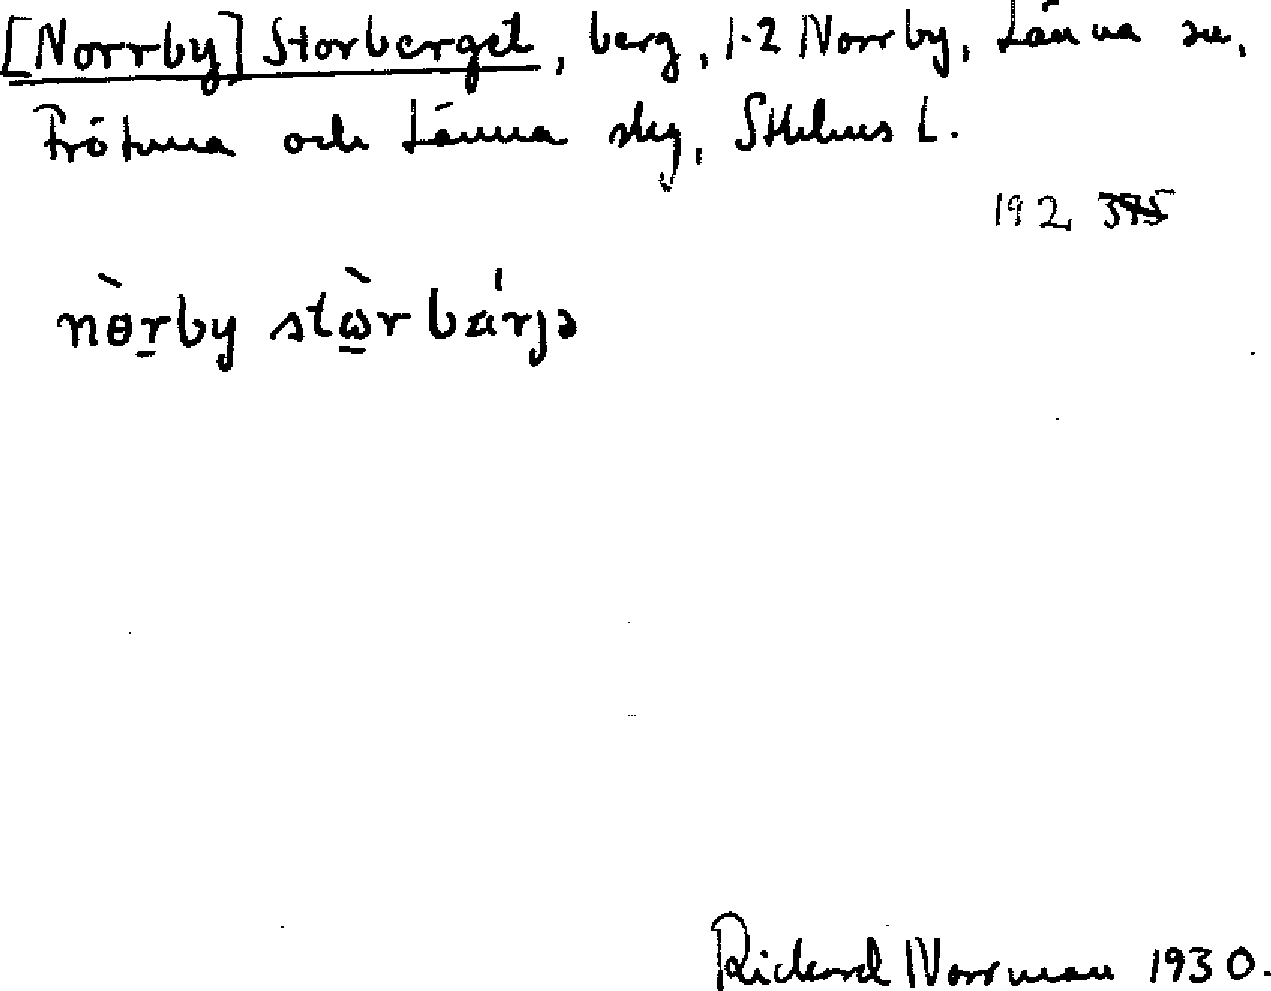 [Norrby] Storberget, berg, 1-2 Norrby, Länna sn,
Frötuna och Länna skg, Sthlms L.
192
nòrby stòrbárjə
Rickard Norrman 1930.